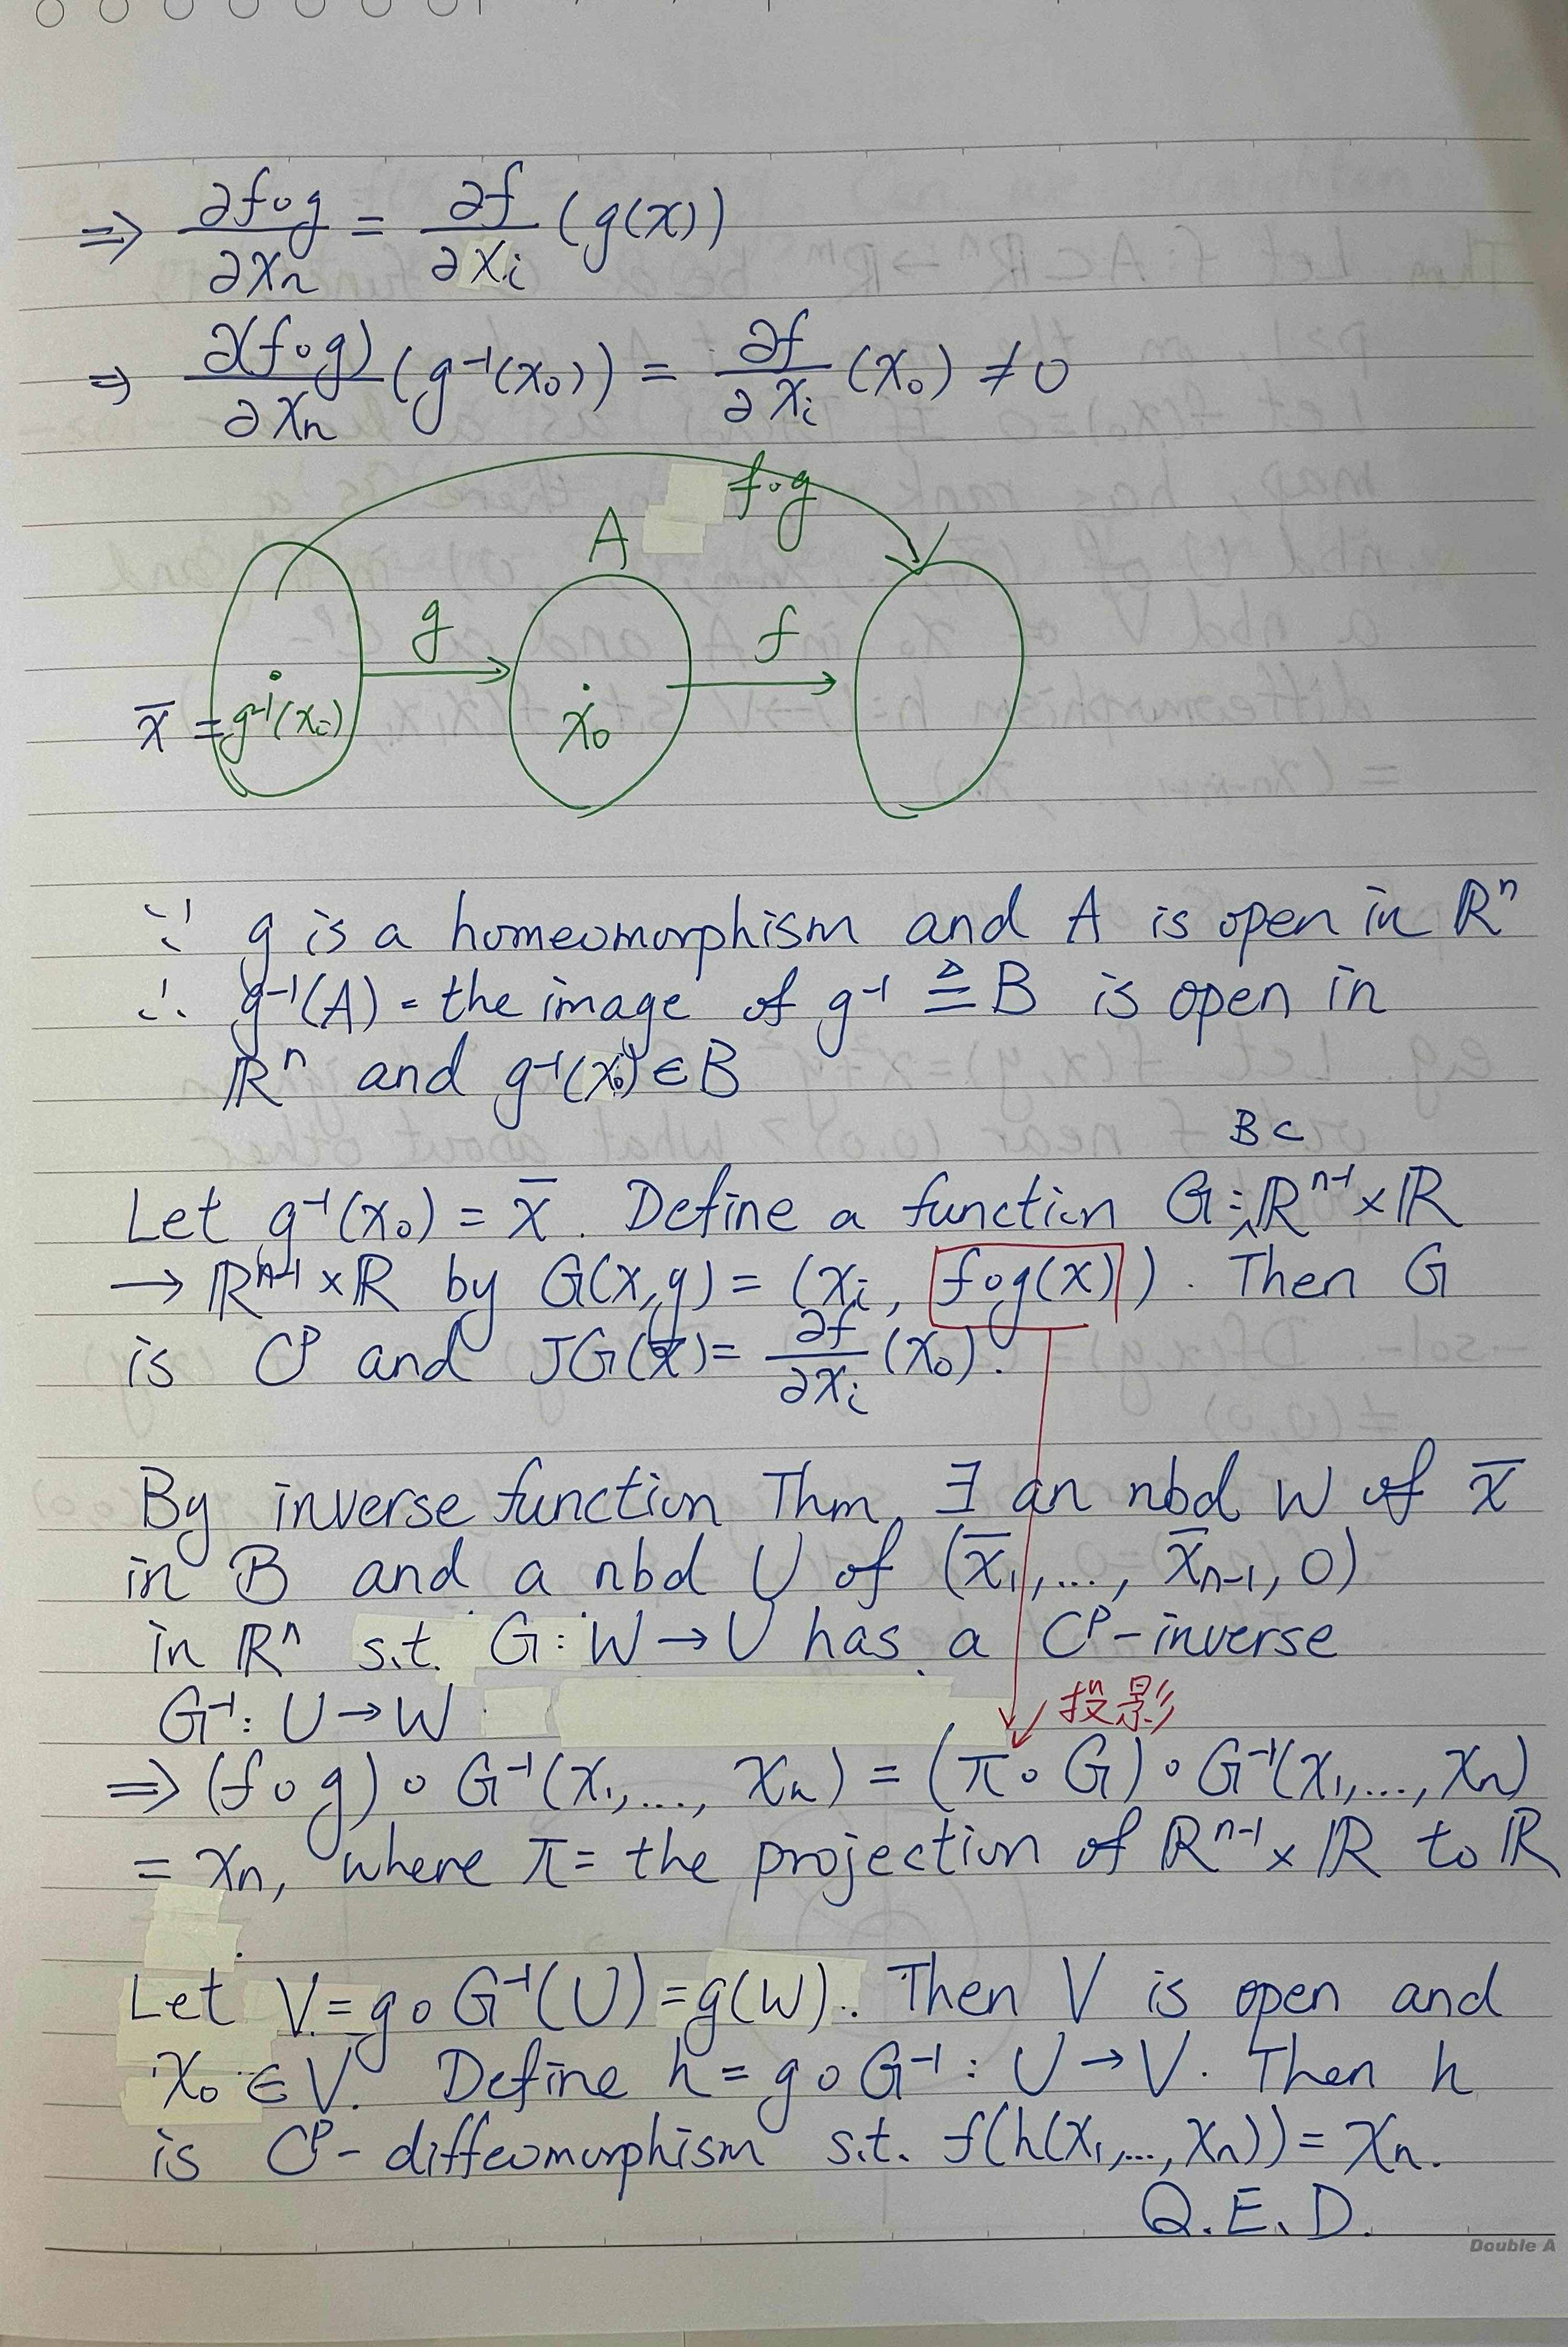 ⇒ ∂f∘g/∂xn = ∂f/∂xi (g(x))
⇒ ∂(f∘g)/∂xn (g⁻¹(x₀)) = ∂f/∂xi (x₀) ≠ 0
f∘g
A
g
f
x̄ = g⁻¹(xi)
x₀
∵ g is a homeomorphism and A is open in ℝⁿ
∴ g⁻¹(A) = the image of g⁻¹ ≜ B is open in
ℝⁿ and g⁻¹(x₀) ∈ B
B ⊂
Let g⁻¹(x₀) = x̄. Define a function G: ℝⁿ⁻¹ × ℝ
→ ℝⁿ⁻¹ × ℝ by G(x,y) = (xi, f∘g(x)). Then G
is Cᵖ and JG(x̄) = ∂f/∂xi (x₀).
By inverse function Thm, ∃ an nbd W of x̄
in B and a nbd U of (x̄₁,..., x̄n-1, 0)
in ℝⁿ s.t. G: W → U has a Cᵖ-inverse
G⁻¹: U → W
投影
⇒ (f∘g)∘G⁻¹(x₁,..., xn) = (π∘G)∘G⁻¹(x₁,..., xn)
= xn, where π = the projection of ℝⁿ⁻¹ × ℝ to ℝ
Let V = g∘G⁻¹(U) = g(W). Then V is open and
x₀ ∈ V. Define h = g∘G⁻¹: U → V. Then h
is Cᵖ-diffeomorphism s.t. f(h(x₁,..., xn)) = xn.
Q.E.D.
Double A